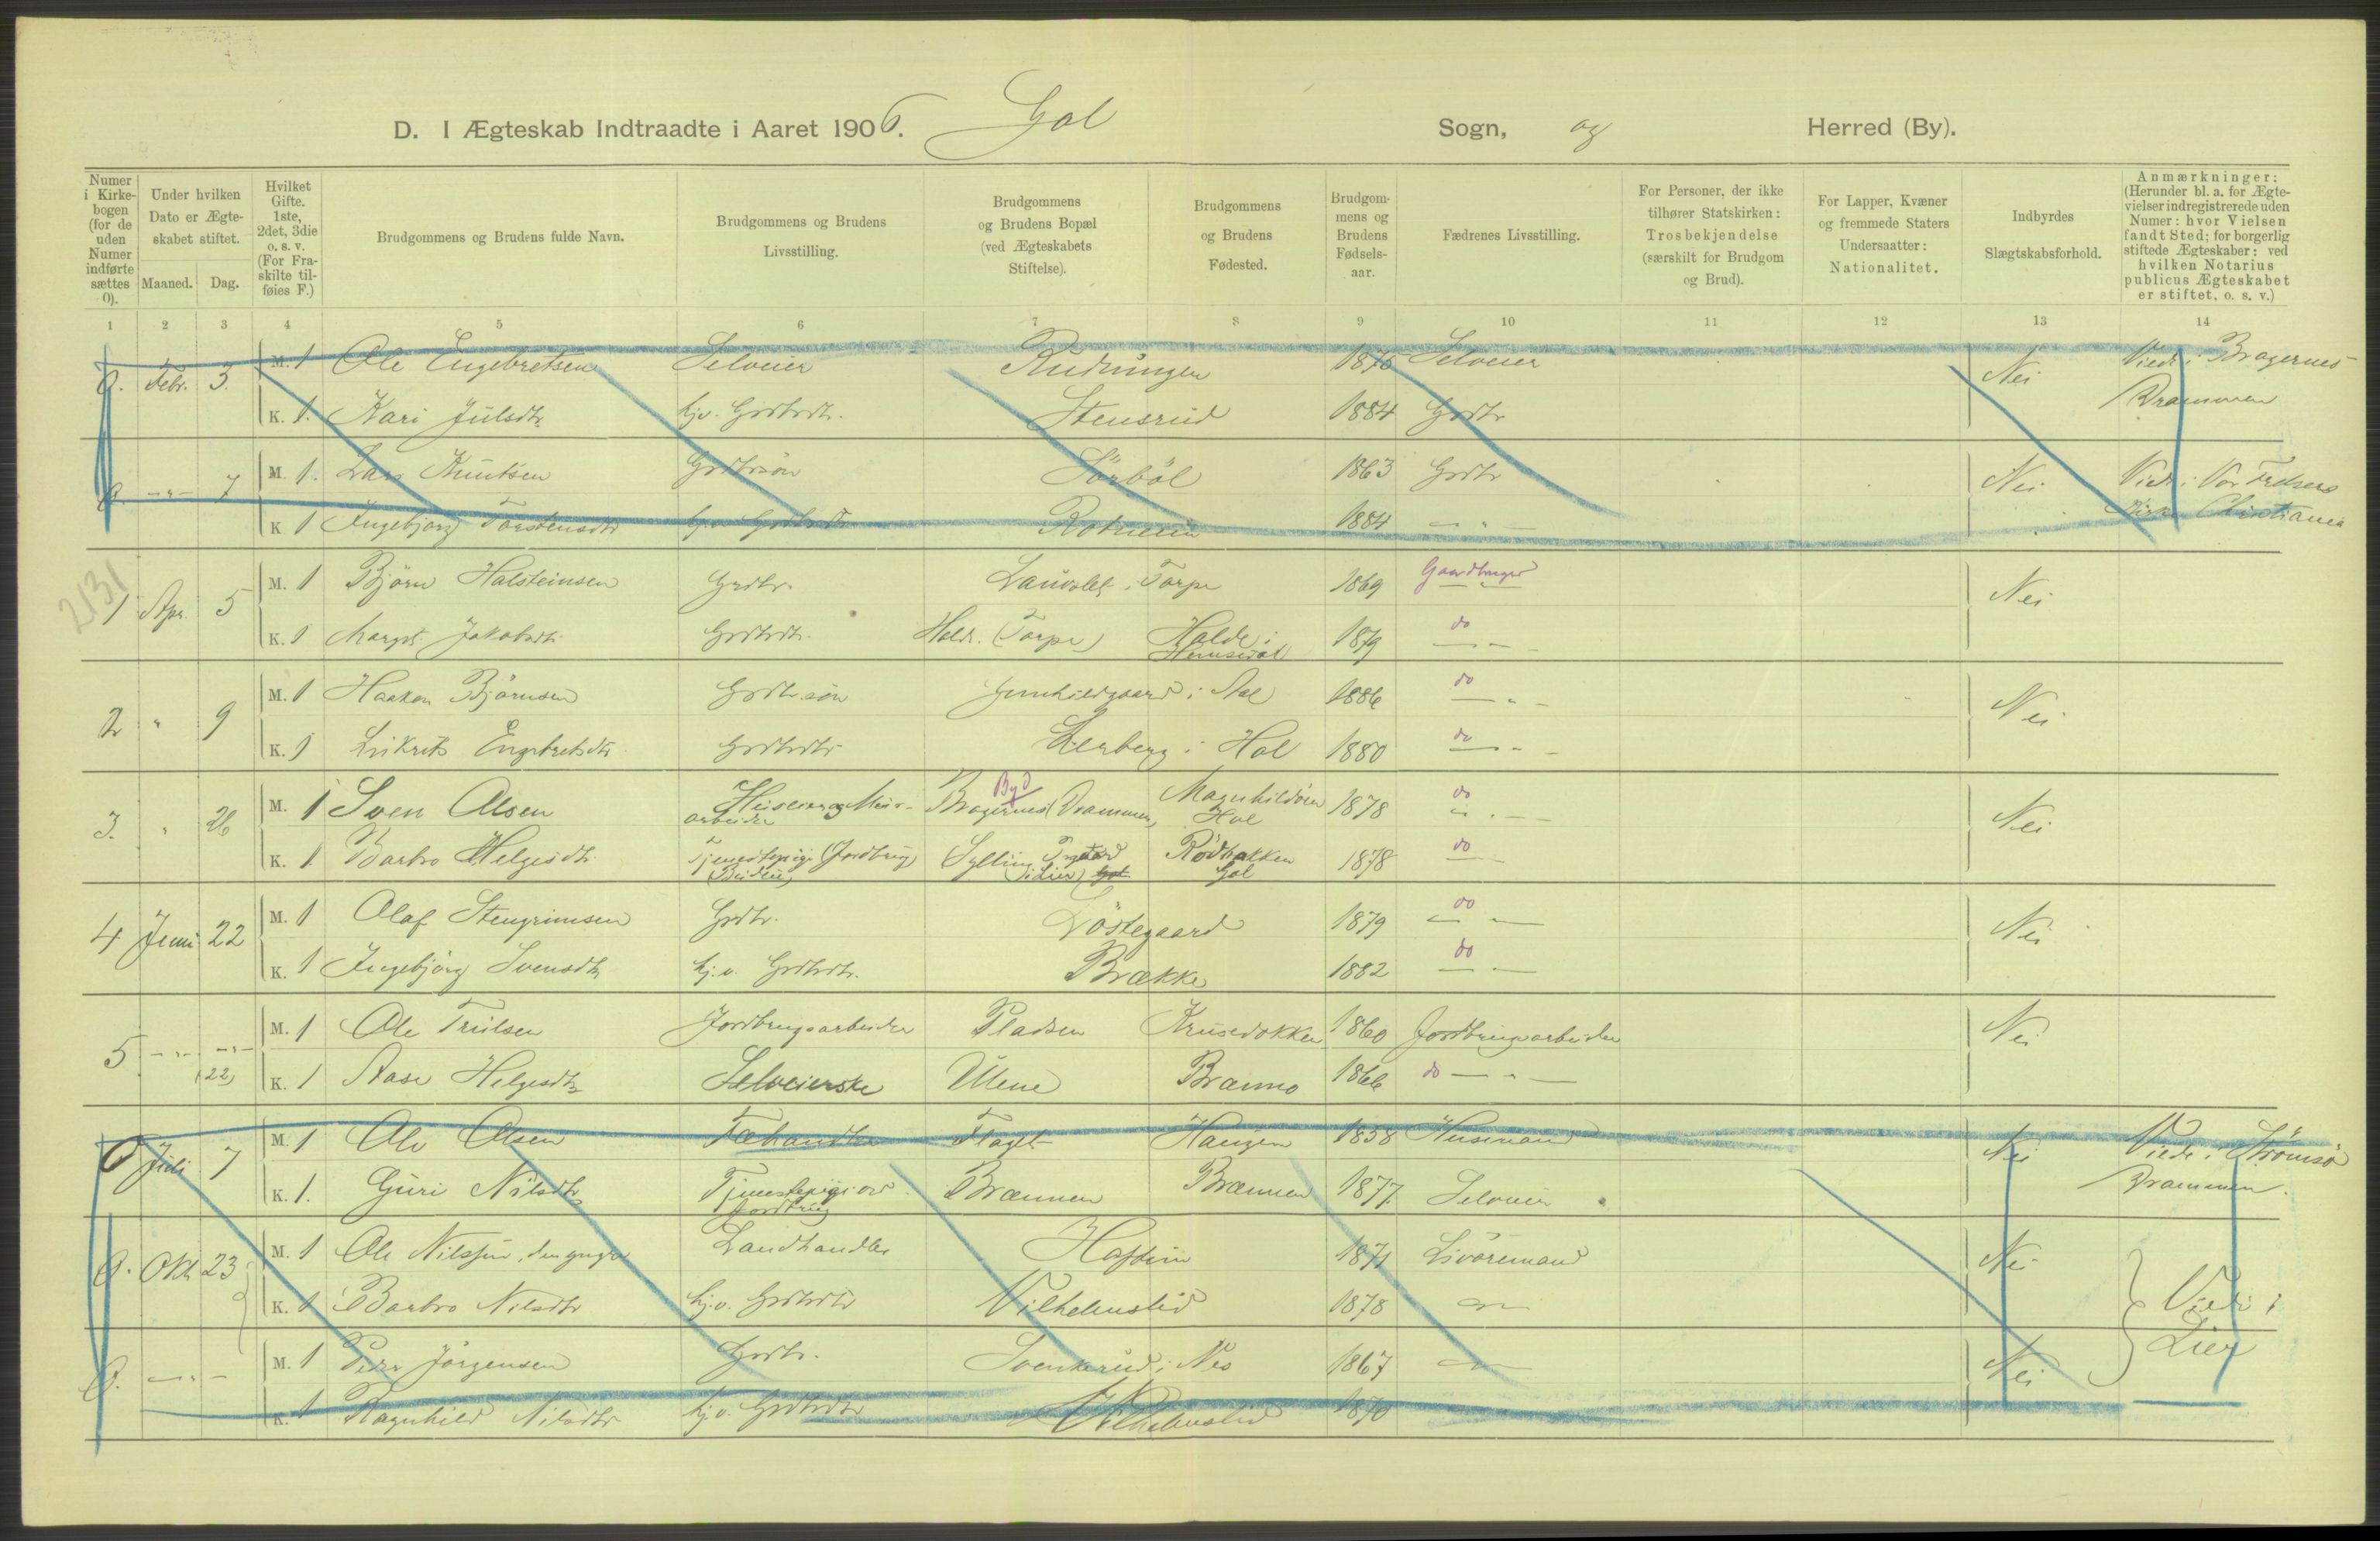 D. I Ægteskab Indtraadte i Aaret 1906. Gol Sogn, og Herred (By).
Numer i Kirkebogen (for de uden Numer indførte sættes 0).
Under hvilken Dato er Ægteskabet stiftet.
Maaned. Dag.
Hvilket Gifte. 1ste, 2det, 3die o. s. v. (For Fraskilte tilføies F.)
Brudgommens og Brudens fulde Navn.
Brudgommens og Brudens Livsstilling.
Brudgommens og Brudens Bopæl (ved Ægteskabets Stiftelse).
Brudgommens og Brudens Fødested.
Brudgommens og Brudens Fødselsaar.
Fædrenes Livsstilling.
For Personer, der ikke tilhører Statskirken: Trosbekjendelse (særskilt for Brudgom og Brud).
For Lapper, Kvæner og fremmede Staters Undersaatter: Nationalitet.
Indbyrdes Slægtskabsforhold.
Anmærkninger: (Herunder bl. a. for Ægtevielser indregistrerede uden Numer: hvor Vielsen fandt Sted; for borgerlig stiftede Ægteskaber: ved hvilken Notarius publicus Ægteskabet er stiftet, o. s. v.)
1 2 3 4 5 6 7 8 9 10 11 12 13 14
0. Febr. 3. M. 1 Ole Engebretsen Selveier Rudningen Selveier Nei Viede i Bragernes
K. 1. Kari Julsdtr. hj.v. Grdbrdtr. Stensrud 1884 Grdbr Drammen
0. -"- 7 M. 1. Lars Knutsen Grdbrsøn Sörböl 1863 Grdbr Nei Viede i Vor Frelsers
K. 1 Ingebjørg Torstensdtr hj.v. Grdbrdtr Rotneim 1884 -"- Kirke Christiania
2131
1 Apr. 5 M. 1 Björn Halsteinsen Grdbr. i Torpe 1869 Gaardbruger Nei
K. 1 Margit Jakobsdtr. Grdbrdtr. (Torpe) Halde i Hemsedal 1879 do
2 " 9 M. 1 Haakon Björnsen Grdbr.søn Gunhildgaard i Aal 1886 do Nei
K. 1 Engebretsdtr Grdbrdtr i Hol 1880 do
3. " 26 M. 1 Sven Olsen arbeider Bragernes (Drammen) By Hol 1878 do Nei
K. 1 Barbro Helgesdtr Tjenestepige (Jordbrug) Sylling (i Lier) Rödbakken Gol 1878 do
4 Juni 22 M. 1 Olaf Stengrimsen Grdbr. Löstegaard 1879 do Nei
K. 1 Ingebjörg Svensdtr hj.v. Grdbrdtr. Brække 1882 do
5 -"- -"- (22) M. 1 Ole Trulsen Jordbrugsarbeider Pladsen Krusedokken 1860 Jordbrugsarbeider Nei
K. 1 Aase Helgesdtr Selveierske Ulene 1866 do -"-
0 Juli 7 M. 1 Ole Olsen Fæhandler Flaget Haugen 1858 Husmand Nei Viede i Strömsö
K. 1. Guri Nilsdtr Tjenestepige ved Jordbrug Brænnen Brænnen 1877. Selveier Drammen.
0. Okt 23 M. 1 Ole Nilssen, den yngre Landhandler 1871 Nei Viede i
K. 1 Barbro Nilsdtr hj.v. Grdbrdtr Vilhelmslid 1878 Lier
0. -"- M. 1 Peder Jörgensen Grdbr. Svenkerud i Nes 1867 Nei
K. 1 Ragnhild Nilsdtr hj.v. Grdbrdtr Vilhelmslid 1870